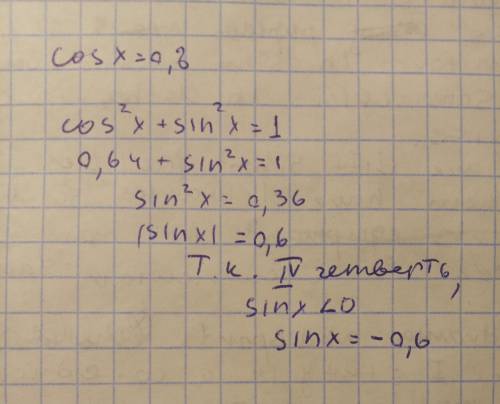 cos x = 0,8
cos²x + sin²x = 1
0,64 + sin²x = 1
sin²x = 0,36
|sin x| = 0,6
Т.к. IV четверть,
sin x < 0
sin x = -0,6